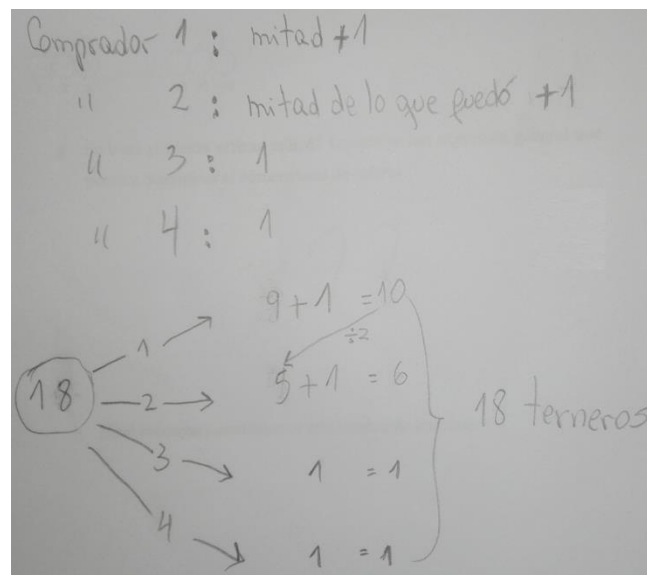 Comprador 1 : mitad +1
" 2 : mitad de lo que quedó +1
" 3 : 1
" 4 : 1
9 + 1 = 10
÷2
18
1
2
3
4
5 + 1 = 6
1 = 1
1 = 1
18 terneros